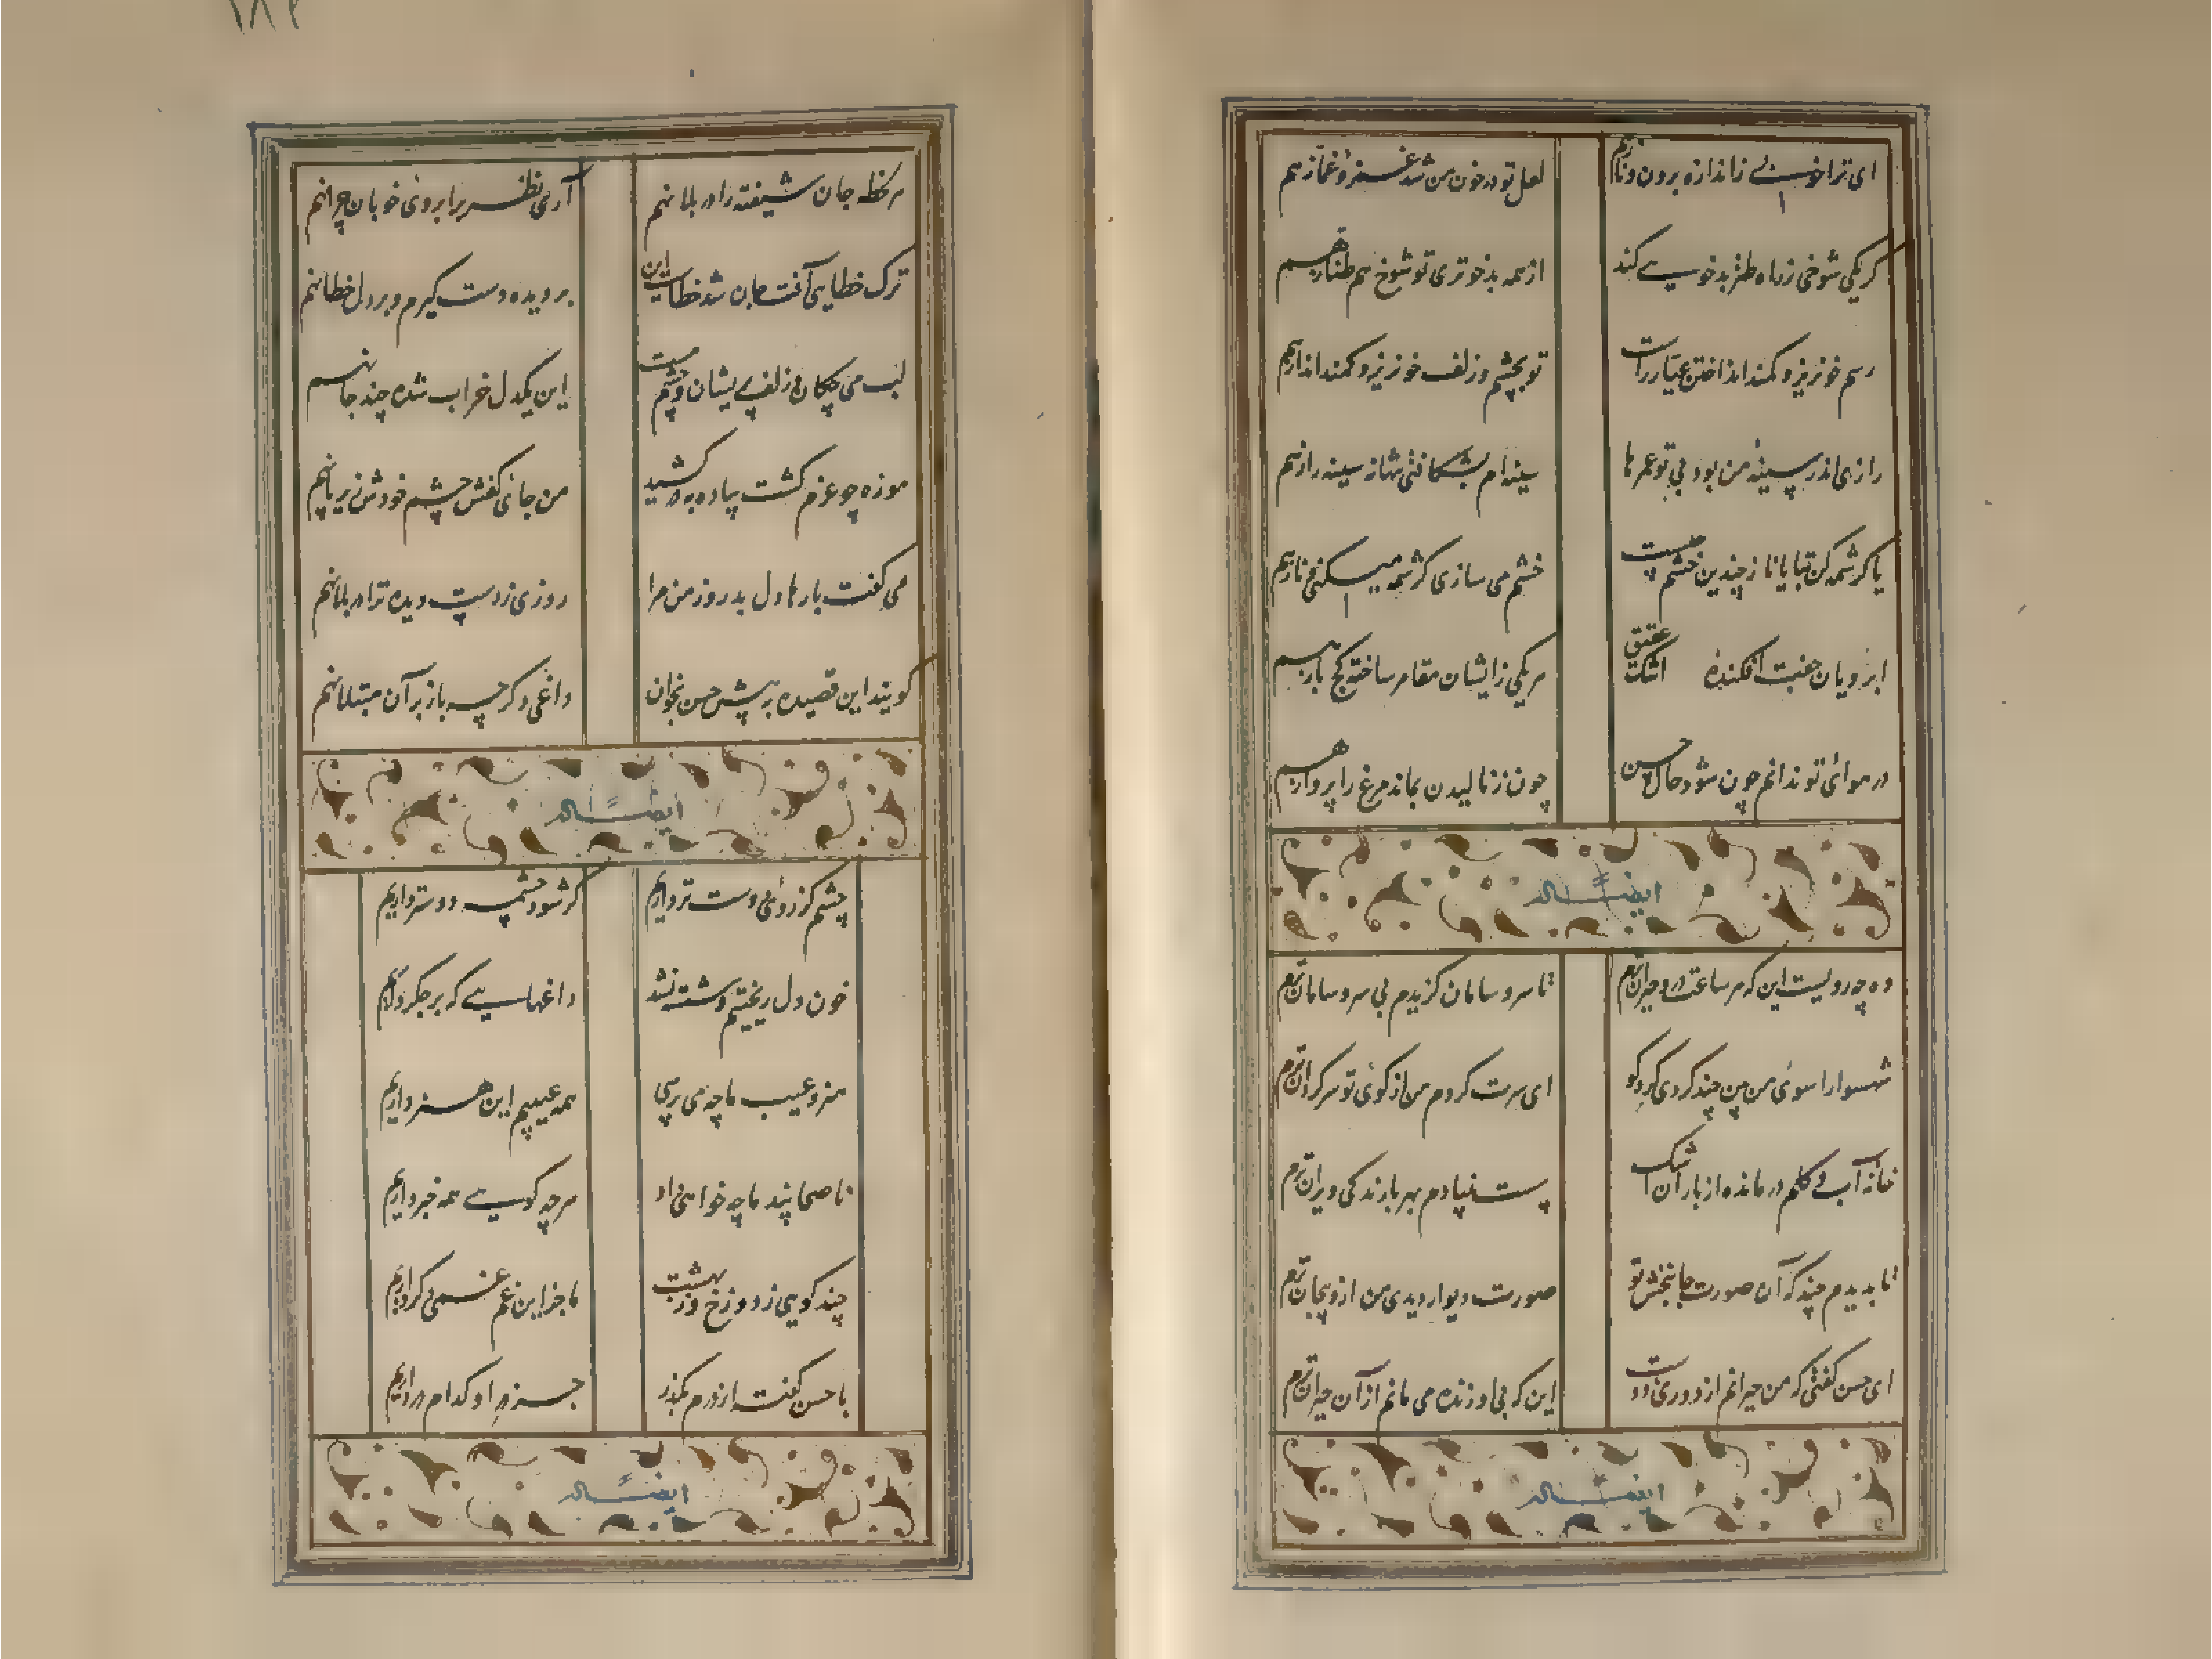 ۱۸۲
ای ترا خوبی ز اندازه برون و ناز هم
لعل تو در خون من شد غمزهٔ غماز هم
گر یکی شوخی ز راه طنز بدخویی کند
از همه بدخوتری تو شوخ هم طناز هم
رسم خونریز و کمند انداختن عیار راست
تو بچشم و زلف خونریز و کمند انداز هم
رازی اندر سینه من بود بی تو عمرها
سینه ام بشکافتی شهباز سینه راز هم
یا کرشمه کن بتا یا ناز چندین خشم چیست
خشم می سازی کرشمه میکنی ناز هم
ابرویان جفت افکنده عقیق اشک
هر یکی زایشان مقامر ساخته کج باز هم
در هوای تو ندانم چون شود حال حسن
چون ز نالیدن بماند مرغ را پرواز هم
ایضاً له
وه چه رویست این که هر ساعت درو حیران ترم
تا سر و سامان گزیدم بی سر و سامان ترم
شهسوارا سوی من چند کردی گرد کو
ای سرت گردم من از گوی تو سرگردان ترم
خانه آب و گلم درمانده از باران اشک
پست بنیادم بهر بارندگی ویران ترم
تا بدیدم چند گه آن صورت جانبخش تو
صورت دیوار دیدی من ازو بیجان ترم
ای حسن گفتی که من حیرانم از دوری دوست
این که بی او زنده می مانم از آن حیران ترم
ایضاً له
هر لحظه جان شیفته را در بلا نهم
آری نظر برابروی خوبان چرا نهم
ترک خطایی آفت جان شد خطاست این
بر دیده دست گیرم و بر دل خطا نهم
لب می چکان و زلف پریشان و چشم مست
این یکدل خراب شده چند جا نهم
موزه چو عزم گشت پیاده بدر کشید
من جای کفش چشم خودش زیر پا نهم
می گفت بارها دل بد روز من مرا
روزی ز دست دیده ترا در بلا نهم
گویند این قصیده به پیش حسن بخوان
داغی دگر چه باز بر آن مبتلا نهم
ایضاً له
چشم کز روی دوست تر داریم
گر شود چشمه دوستر داریم
خون دل ریختیم و شسته نشد
داغهایی که بر جگر داریم
هنر و عیب ما چه می پرسی
همه عیبیم این هنر داریم
ناصحا پند ما چه خواهی داد
هرچه گویی همه خبر داریم
چند گویی ز دوزخ و ز بهشت
ما جز این غم غمی دگر داریم
با حسن گفت از درم بگذر
جز در او کدام در داریم
ایضاً له